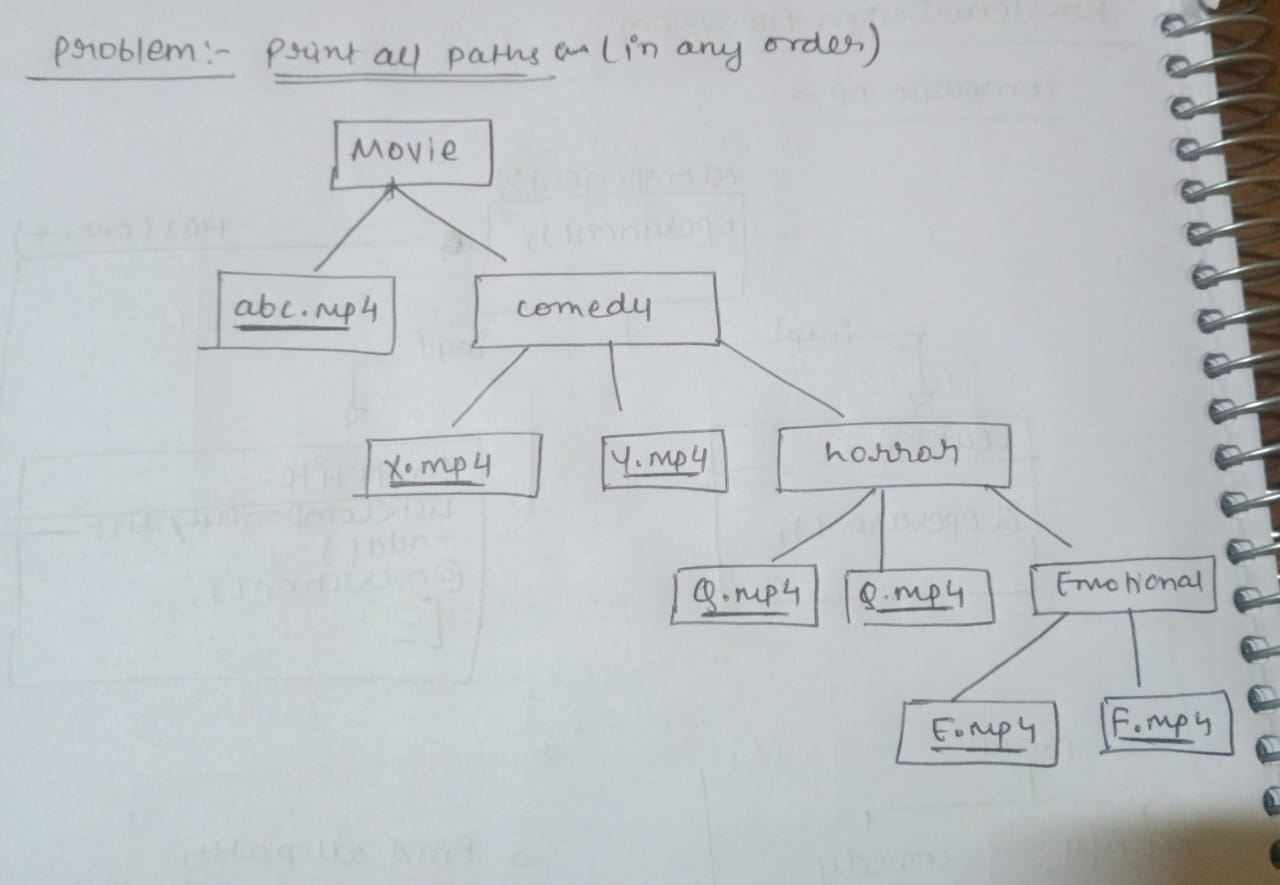 Problem:- Print all paths (in any order)
Movie
abc.mp4 comedy
X.mp4 Y.mp4 horror
Q.mp4 Q.mp4 Emotional
E.mp4 F.mp4